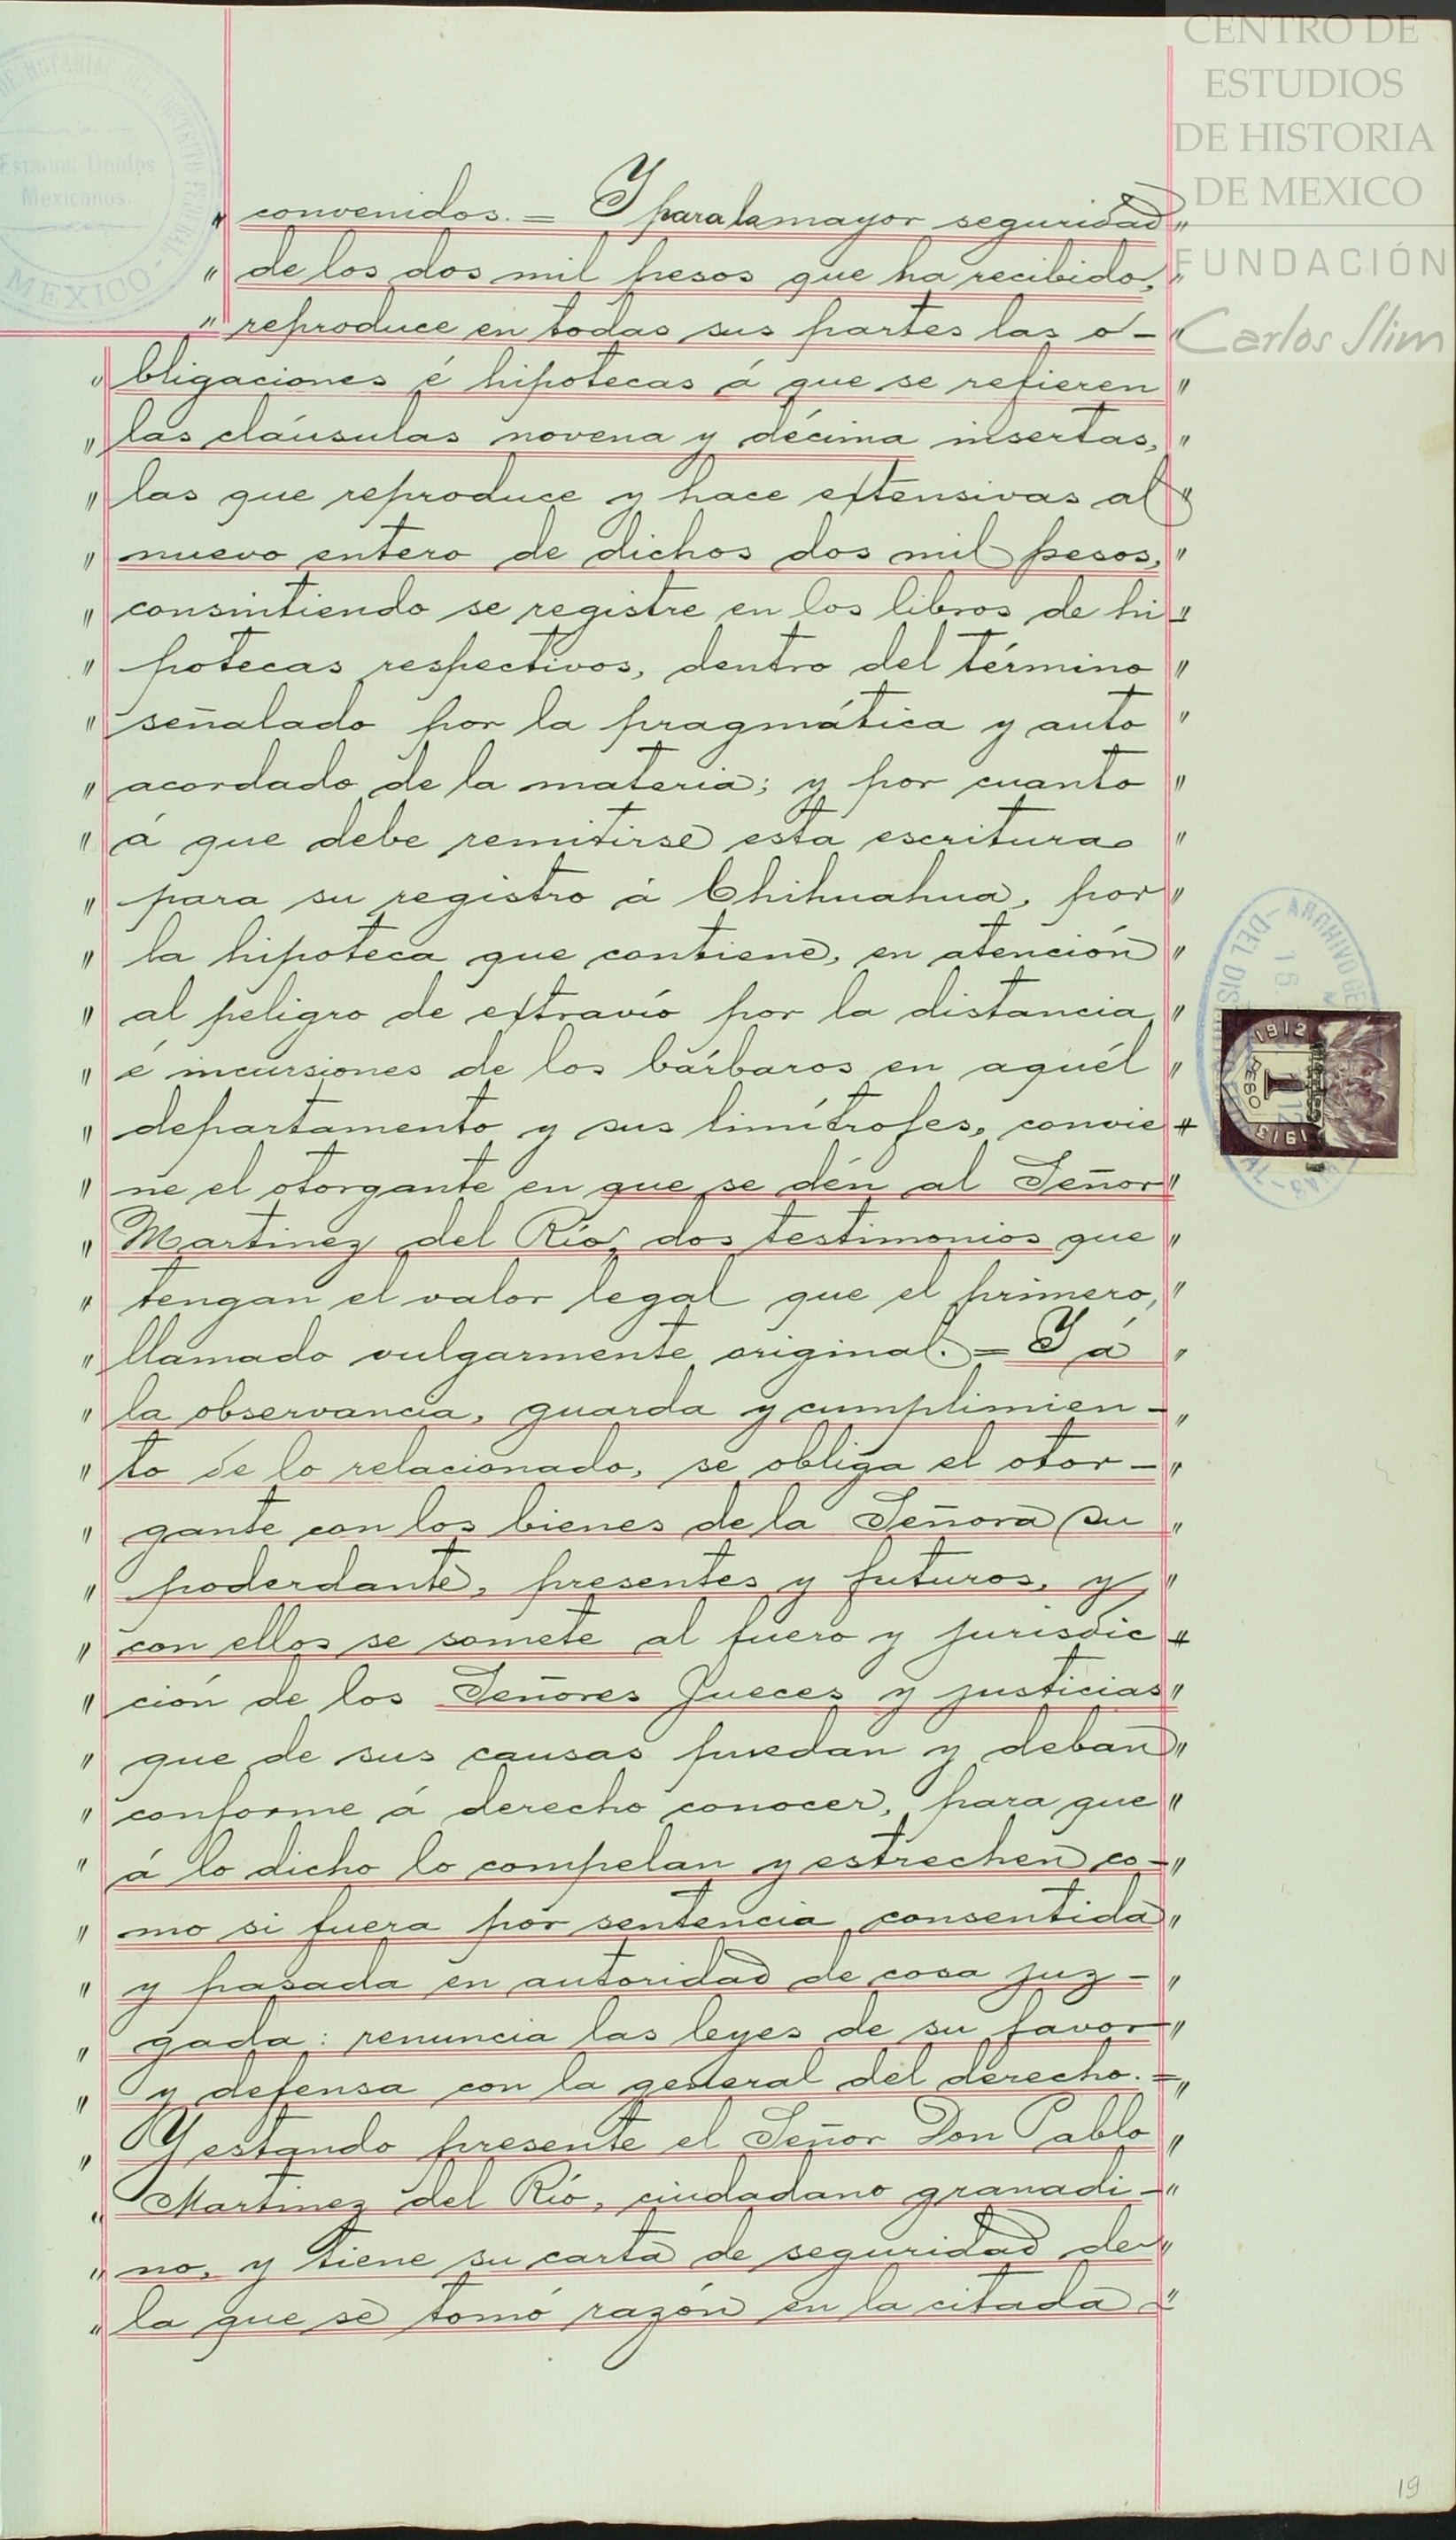 CENTRO DE
ESTUDIOS
DE HISTORIA
DE MEXICO
FUNDACIÓN
Carlos Slim
Estados Unidos
Mexicanos.
MEXICO
" convenidos. = Y para la mayor seguridad "
" de los dos mil pesos que ha recibido, "
" reproduce en todas sus partes las o- "
" bligaciones é hipotecas á que se refieren "
" las cláusulas novena y décima insertas, "
" las que reproduce y hace extensivas al "
" nuevo entero de dichos dos mil pesos, "
" consintiendo se registre en los libros de hi- "
" potecas respectivos, dentro del término "
" señalado por la pragmática y auto "
" acordado de la materia; y por cuanto "
" á que debe remitirse esta escritura "
" para su registro á Chihuahua, por "
" la hipoteca que contiene, en atención "
" al peligro de extravío por la distancia "
" é incursiones de los bárbaros en aquél "
" departamento y sus limítrofes, convie- "
" ne el otorgante en que se dén al Señor "
" Martinez del Río, dos testimonios que "
" tengan el valor legal que el primero, "
" llamado vulgarmente original. = Y á "
" la observancia, guarda y cumplimien- "
" to de lo relacionado, se obliga el otor- "
" gante con los bienes de la Señora su "
" poderdante, presentes y futuros, y "
" con ellos se somete al fuero y jurisdic- "
" ción de los Señores Jueces y justicias "
" que de sus causas puedan y deban "
" conforme á derecho conocer, para que "
" á lo dicho lo compelan y estrechen co- "
" mo si fuera por sentencia consentida "
" y pasada en autoridad de cosa juz- "
" gada: renuncia las leyes de su favor "
" y defensa con la general del derecho. = "
" Y estando presente el Señor Don Pablo "
" Martinez del Río, ciudadano granadi- "
" no, y tiene su carta de seguridad de "
" la que se tomó razón en la citada "
1912
1
PESO
1913
19